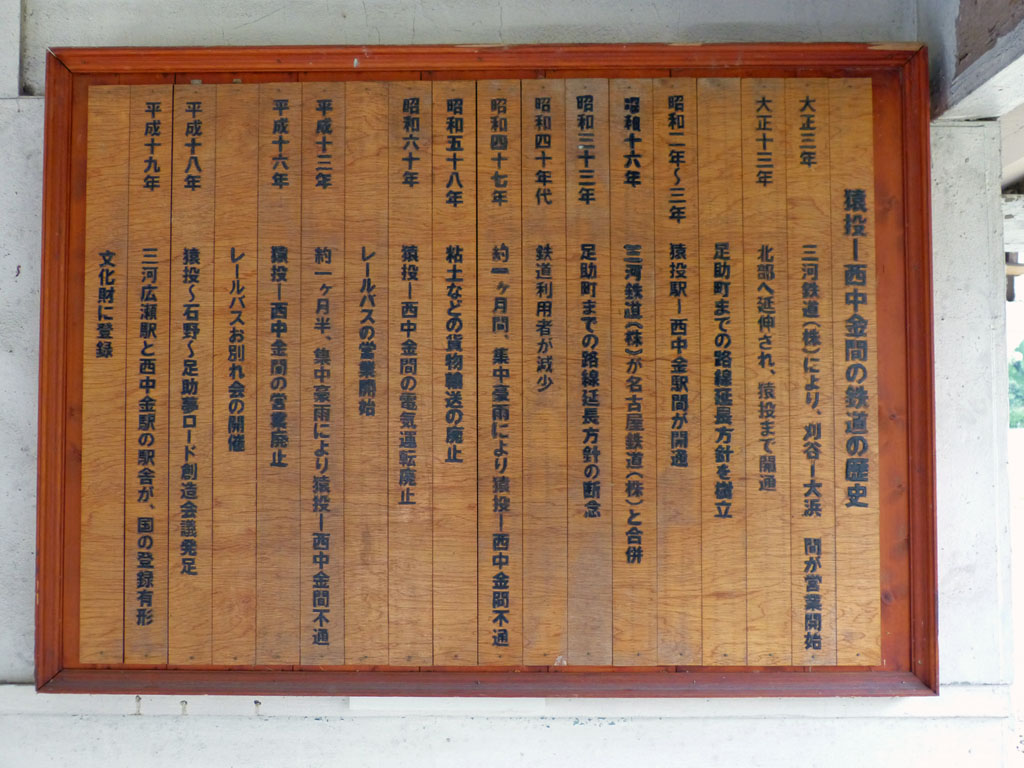 猿投ー西中金間の鉄道の歴史
大正三年 三河鉄道(株)により、刈谷ー大浜 間が営業開始
大正十三年 北部へ延伸され、猿投まで開通
足助町までの路線延長方針を樹立
昭和二年～三年 猿投駅ー西中金駅間が開通
昭和十六年 三河鉄道(株)が名古屋鉄道(株)と合併
昭和三十三年 足助町までの路線延長方針の断念
昭和四十年代 鉄道利用者が減少
昭和四十七年 約一ヶ月間、集中豪雨により猿投ー西中金間不通
昭和五十八年 粘土などの貨物輸送の廃止
昭和六十年 猿投ー西中金間の電気運転廃止
レールバスの営業開始
平成十二年 約一ヶ月半、集中豪雨により猿投ー西中金間不通
平成十六年 猿投ー西中金間の営業廃止
レールバスお別れ会の開催
平成十八年 猿投～石野～足助夢ロード創造会議発足
平成十九年 三河広瀬駅と西中金駅の駅舎が、国の登録有形
文化財に登録